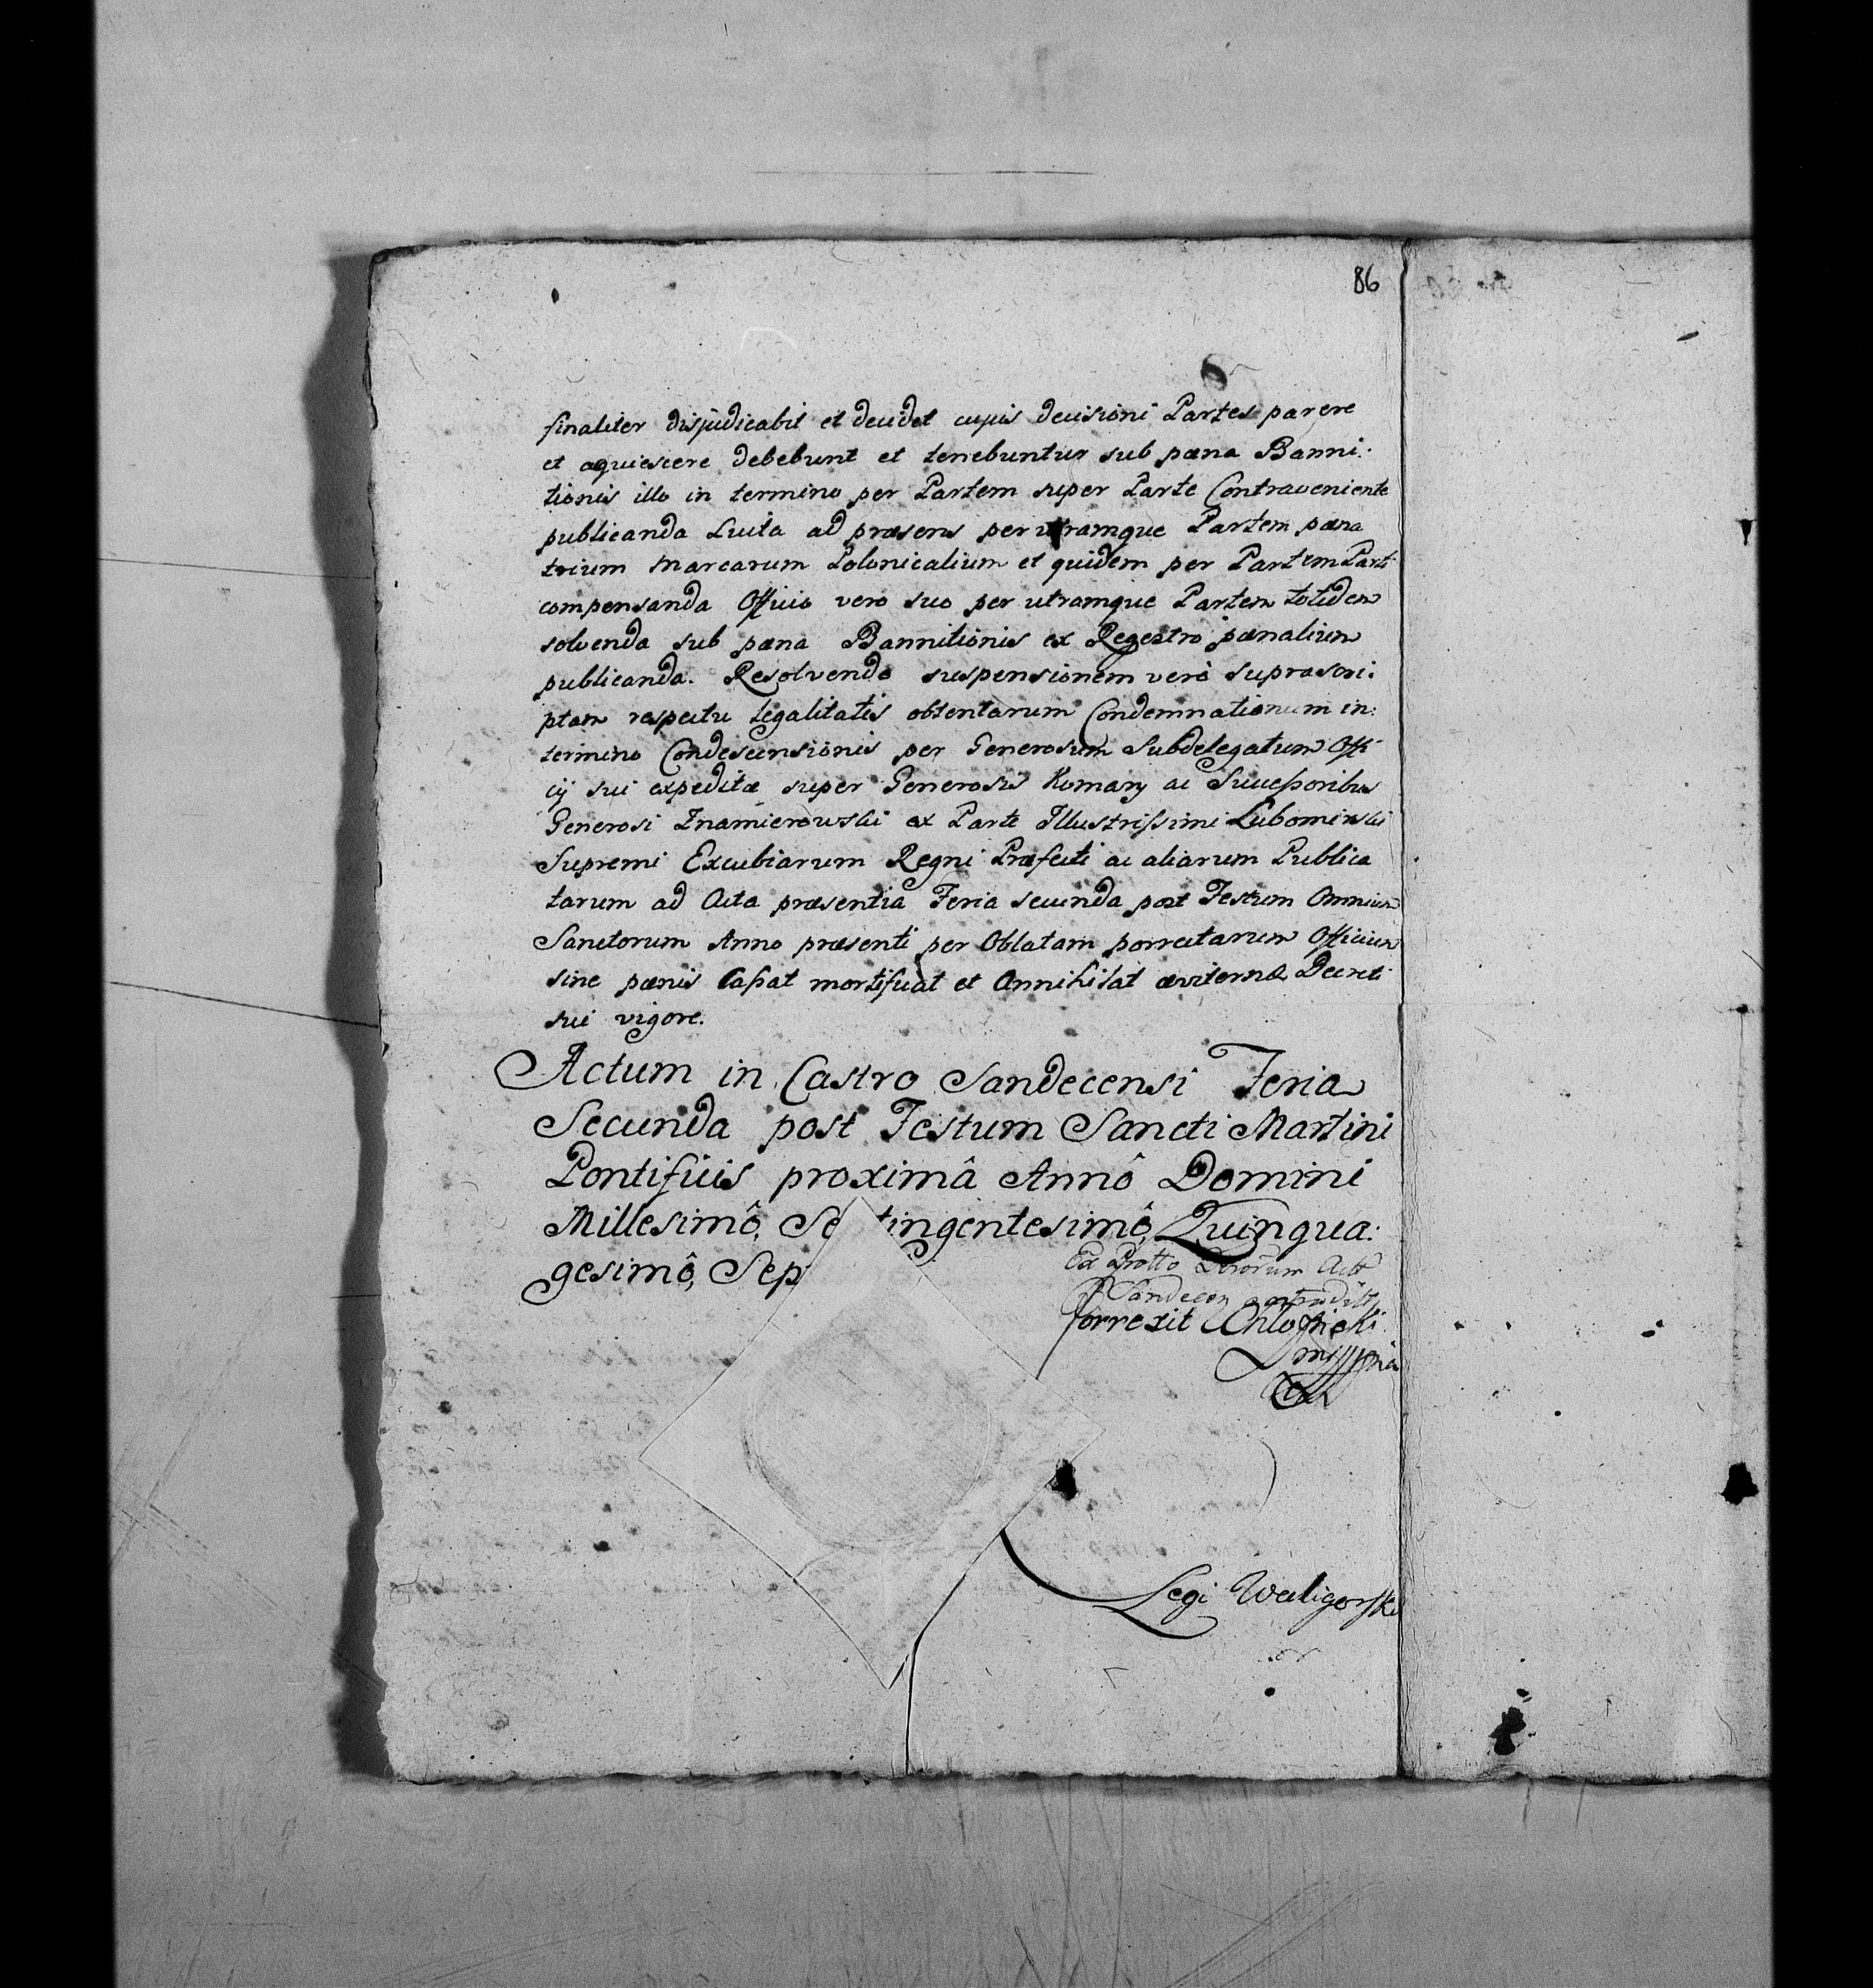 86
finaliter disjudicabit et decidet cujus decisioni Partes parere
et aquiescere debebunt et tenebuntur sub pæna Banni:
tionis illo in termino per Partem super Parte Contraveniente
publicanda Luita ad præsens per utramque Partem pæna
trium Marcarum Polonicalium et quidem per Partem Parti
compensanda Officio vero suo per utramque Partem totidem
solvenda sub pæna Bannitionis ex Regestro pænalium
publicanda. Resolvendo suspensionem verò suprascri:
ptam respectu legalitatis obtentarum Condemnationum in:
termino Condescensionis per Generosum Subdelegatum Offi
cij sui expeditæ super Generosis Komary ac Successoribus
Generosi Znamierowski ex Parte Illustrissimi Lubomirski
Supremi Excubiarum Regni Præfecti ac aliarum Publica
tarum ad Acta præsentia Feria secunda post Festum Omnium
Sanctorum Anno præsenti per Oblatam porrectarum Officium
sine pænis Cassat mortificat et Annihilat æviternæ Decreti
sui vigore.
Actum in Castro Sandecensi Feria
Secunda post Festum Sancti Martini
Pontificis proximâ Annô Domini
Millesimô, Se tingentesimô, Quinqua:
gesimô, Sep
Ex Protto Dtorum Actt
Sandecen
Correxit
Legi Waligorski